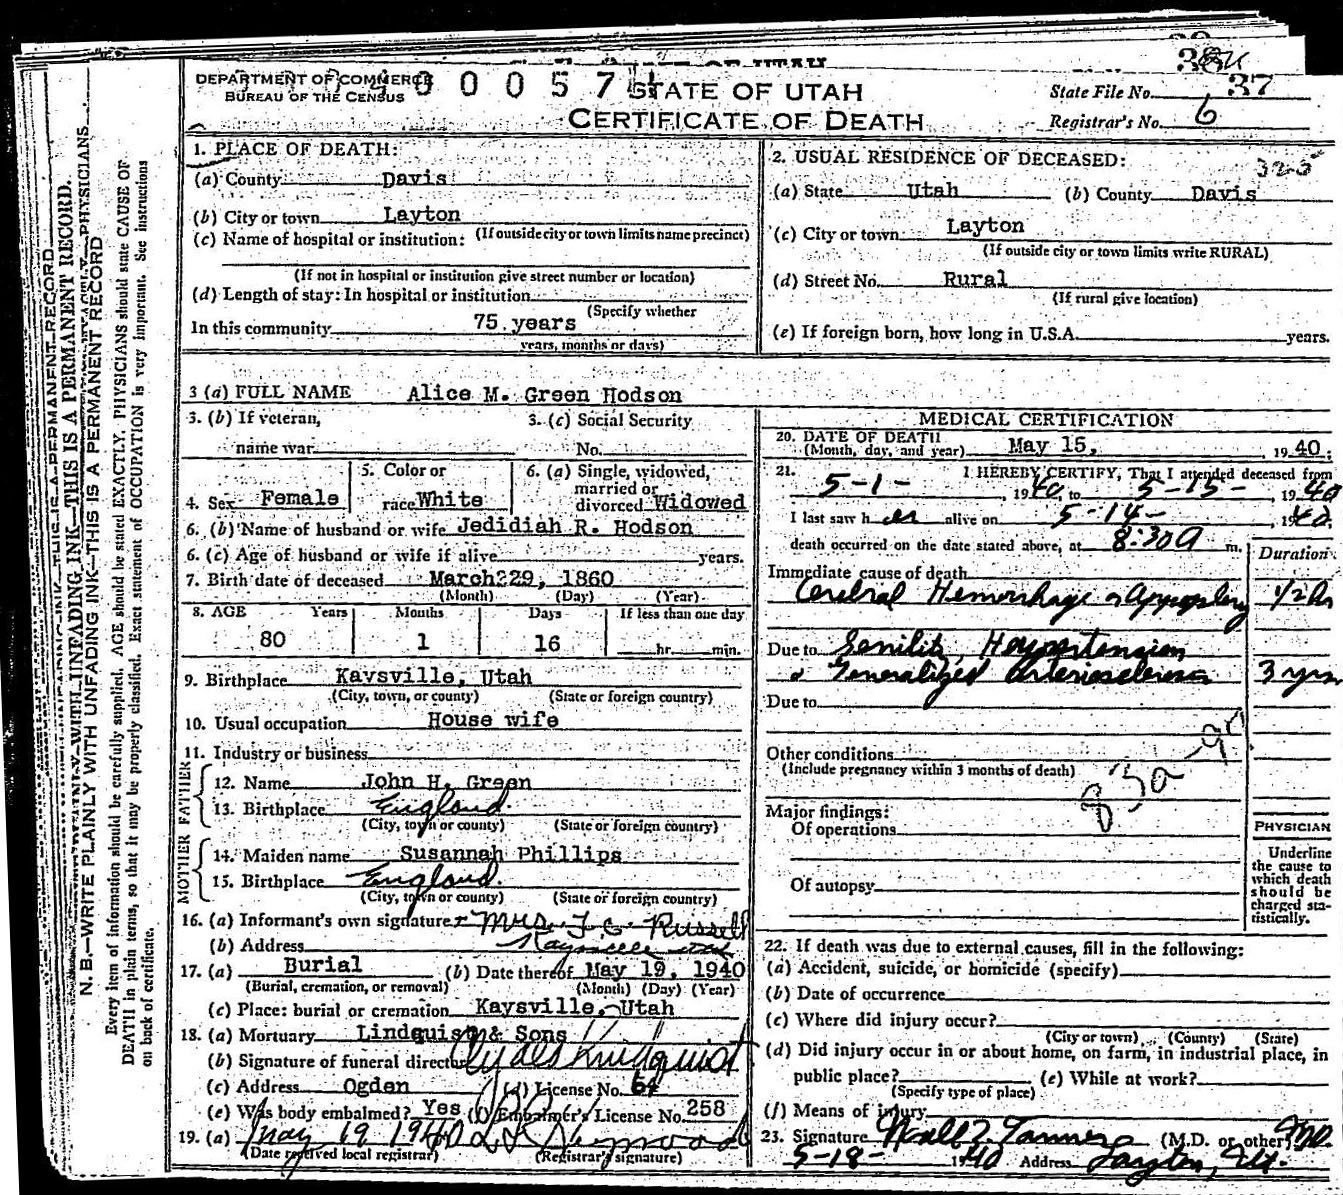 DEPARTMENT OF COMMERCE
BUREAU OF THE CENSUS
STATE OF UTAH
CERTIFICATE OF DEATH
State File No. 37
Registrar's No. 6
1. PLACE OF DEATH:
(a) County Davis
(b) City or town Layton
(If outside city or town limits name precinct)
(c) Name of hospital or institution:
(If not in hospital or institution give street number or location)
(d) Length of stay: In hospital or institution
(Specify whether
In this community 75 years
years, months or days)
2. USUAL RESIDENCE OF DECEASED:
(a) State Utah (b) County Davis
(c) City or town Layton
(If outside city or town limits write RURAL)
(d) Street No. Rural
(If rural give location)
(e) If foreign born, how long in U.S.A. years.
3 (a) FULL NAME Alice M. Green Hodson
3. (b) If veteran,
name war
3. (c) Social Security
No.
4. Sex Female
5. Color or
race White
6. (a) Single, widowed,
married or
divorced Widowed
6. (b) Name of husband or wife Jedidiah R. Hodson
6. (c) Age of husband or wife if alive years.
7. Birth date of deceased March 29, 1860
(Month) (Day) (Year)
8. AGE Years Months Days If less than one day
80 1 16 hr. min.
9. Birthplace Kaysville, Utah
(City, town, or county) (State or foreign country)
10. Usual occupation House wife
11. Industry or business
FATHER
12. Name John H. Green
13. Birthplace England.
(City, town or county) (State or foreign country)
MOTHER
14. Maiden name Susannah Phillips
15. Birthplace England.
(City, town or county) (State or foreign country)
16. (a) Informant's own signature Mrs. J. C. Russell
(b) Address Kaysville Utah
17. (a) Burial (b) Date thereof May 19, 1940
(Burial, cremation, or removal) (Month) (Day) (Year)
(c) Place: burial or cremation Kaysville, Utah
18. (a) Mortuary Lindquist & Sons
(b) Signature of funeral director Clyde Lindquist
(c) Address Ogden (d) License No. 64
(e) Was body embalmed? Yes (f) Embalmer's License No. 258
19. (a) May 19 1940
(Date received local registrar) (Registrar's signature)
MEDICAL CERTIFICATION
20. DATE OF DEATH
(Month, day, and year) May 15, 1940.
21. I HEREBY CERTIFY, That I attended deceased from
5-1-, 1940 to 5-15-, 1940
I last saw her alive on 5-14-, 1940.
death occurred on the date stated above, at 8:30 a m.
Duration
Immediate cause of death
Cerebral Hemorrhage or Apoplexy 1/2 hr
Due to Senility, Hypertension
& Generalized arteriosclerosis 3 yrs
Due to
Other conditions
(Include pregnancy within 3 months of death)
Major findings:
Of operations
Of autopsy
PHYSICIAN
Underline
the cause to
which death
should be
charged sta-
tistically.
22. If death was due to external causes, fill in the following:
(a) Accident, suicide, or homicide (specify)
(b) Date of occurrence
(c) Where did injury occur?
(City or town) (County) (State)
(d) Did injury occur in or about home, on farm, in industrial place, in
public place? (e) While at work?
(Specify type of place)
(f) Means of injury
23. Signature Noall Z. Tanner (M.D. or other) M.D.
5-18- 1940 Address Layton, Ut.
N. B.—WRITE PLAINLY WITH UNFADING INK—THIS IS A PERMANENT RECORD
Every item of information should be carefully supplied. AGE should be stated EXACTLY. PHYSICIANS should state CAUSE OF
DEATH in plain terms, so that it may be properly classified. Exact statement of OCCUPATION is very important. See instructions
on back of certificate.